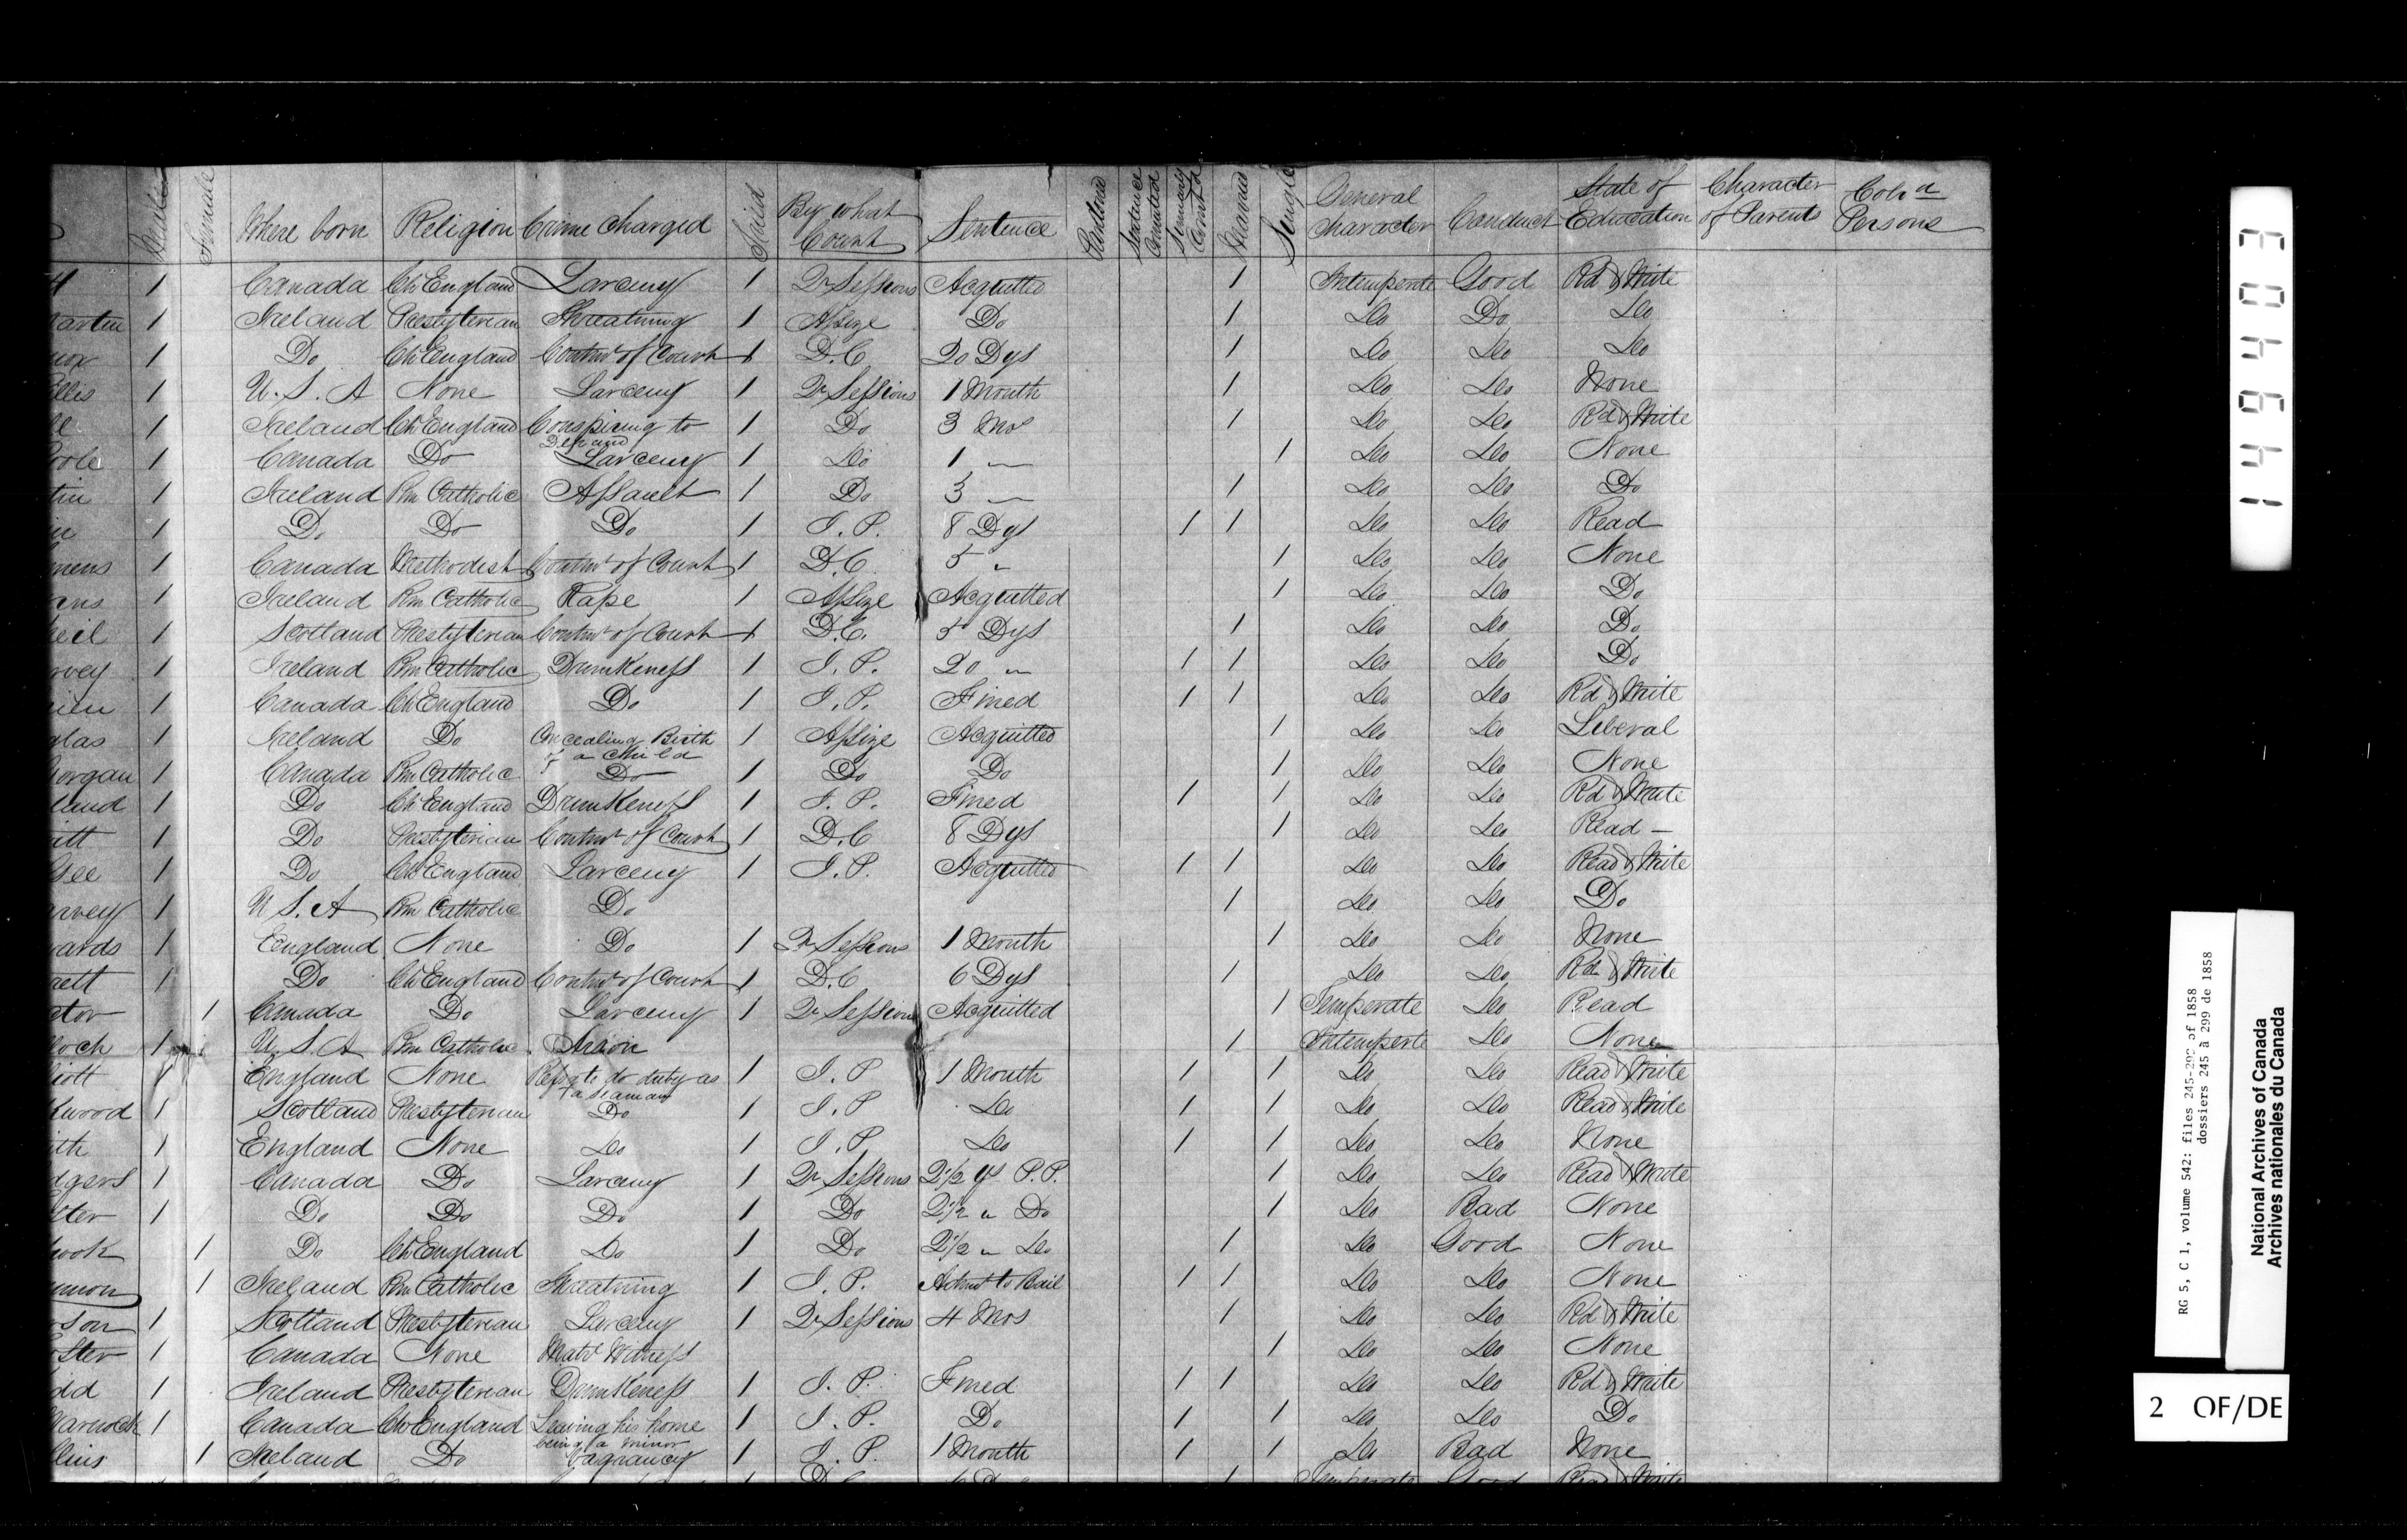 Male Female Where born Religion Crime charged Tried By what Court Sentence Sentence Married Single General Character Conduct State of Education Character of Parents Cold Persons
1 Canada Ch England Larceny 1 Qr Sessions Acquitted 1 Intemperate Good Rd & Write
artin 1 Ireland Presbyterian Threatning 1 Assize Do 1 Do Do Do
nox 1 Do Ch England Contmt of Court 1 D.C 20 Dys 1 Do Do Do
llis 1 U.S.A None Larceny 1 Qr Sessions 1 Month 1 Do Do None
ll 1 Ireland Ch England Conspiring to Defraud 1 Do 3 Mos 1 Do Do Rd & Write
oole 1 Canada Do Larceny 1 Do 1 " 1 Do Do None
tin 1 Ireland Rm Catholic Assault 1 Do 3 " 1 Do Do Do
in 1 Do Do Do 1 J.P. 8 Dys 1 1 Do Do Read
mens 1 Canada Methodist Contmt of Court 1 D.C. 5 " 1 Do Do None
ens 1 Ireland Rm Catholic Rape 1 Assize Acquitted 1 Do Do Do
eil 1 Scotland Presbyterian Contmt of Court 1 D.C. 5 Dys 1 Do Do Do
rvey 1 Ireland Rm Catholic Drunkeness 1 J.P. 20 " 1 1 Do Do Do
ien 1 Canada Ch England Do 1 J.P. Fined 1 1 Do Do Rd & Write
glas 1 Ireland Do Concealing Birth of a Child 1 Assize Acquitted 1 Do Do Liberal
organ 1 Canada Rm Catholic Do 1 Do Do 1 Do Do None
land 1 Do Ch England Drunkeness 1 J.P. Fined 1 1 Do Do Rd & Write
att 1 Do Presbyterian Contmt of Court 1 D.C 8 Dys 1 Do Do Read —
Gee 1 Do Ch England Larceny 1 J.P. Acquitted 1 1 Do Do Read & Write
arvey 1 U.S.A Rm Catholic Do 1 Do Do Do
wards 1 England None Do 1 Qr Sessions 1 Month 1 Do Do None
rett 1 Do Ch England Contmt of Court 1 D.C 6 Dys 1 Do Do Rd & Write
ctor 1 Canada Do Larceny 1 Qr Sessions Acquitted 1 Temperate Do Read
loch 1 U.S.A Rm Catholic Arson 1 Intemperte Do None
iott 1 England None Refsg to do duty as a seaman 1 J.P 1 Month 1 1 Do Do Read & Write
kwood 1 Scotland Presbyterian Do 1 J.P Do 1 1 Do Do Read & Write
ith 1 England None Do 1 J.P. Do 1 1 Do Do None
dgers 1 Canada Do Larceny 1 Qr Sessions 2 1/2 ys P.P. 1 Do Do Read & Write
ster 1 Do Do Do 1 Do 2 1/2 " Do 1 Do Bad None
ook 1 Do Ch England Do 1 Do 2 1/2 " Do 1 Do Good None
nnon 1 Ireland Rm Catholic Threatning 1 J.P. Admt to Bail 1 1 Do Do None
son 1 Scotland Presbyterian Larceny 1 Qr Sessions 4 Mos 1 Do Do Rd & Write
ster 1 Canada None Matl Witness 1 Do Do None
dd 1 Ireland Presbyterian Drunkeness 1 J.P. Fined 1 1 Do Do Rd & Write
Warnock 1 Canada Ch England Leaving his home being a minor 1 J.P. Do 1 1 Do Do Do
llins 1 Ireland Do Vagrancy 1 J.P. 1 Month 1 1 Do Bad None
149403
RG 5, C 1, volume 542: files 245-299 of 1858
dossiers 245 à 299 de 1858
National Archives of Canada
Archives nationales du Canada
2 OF/DE